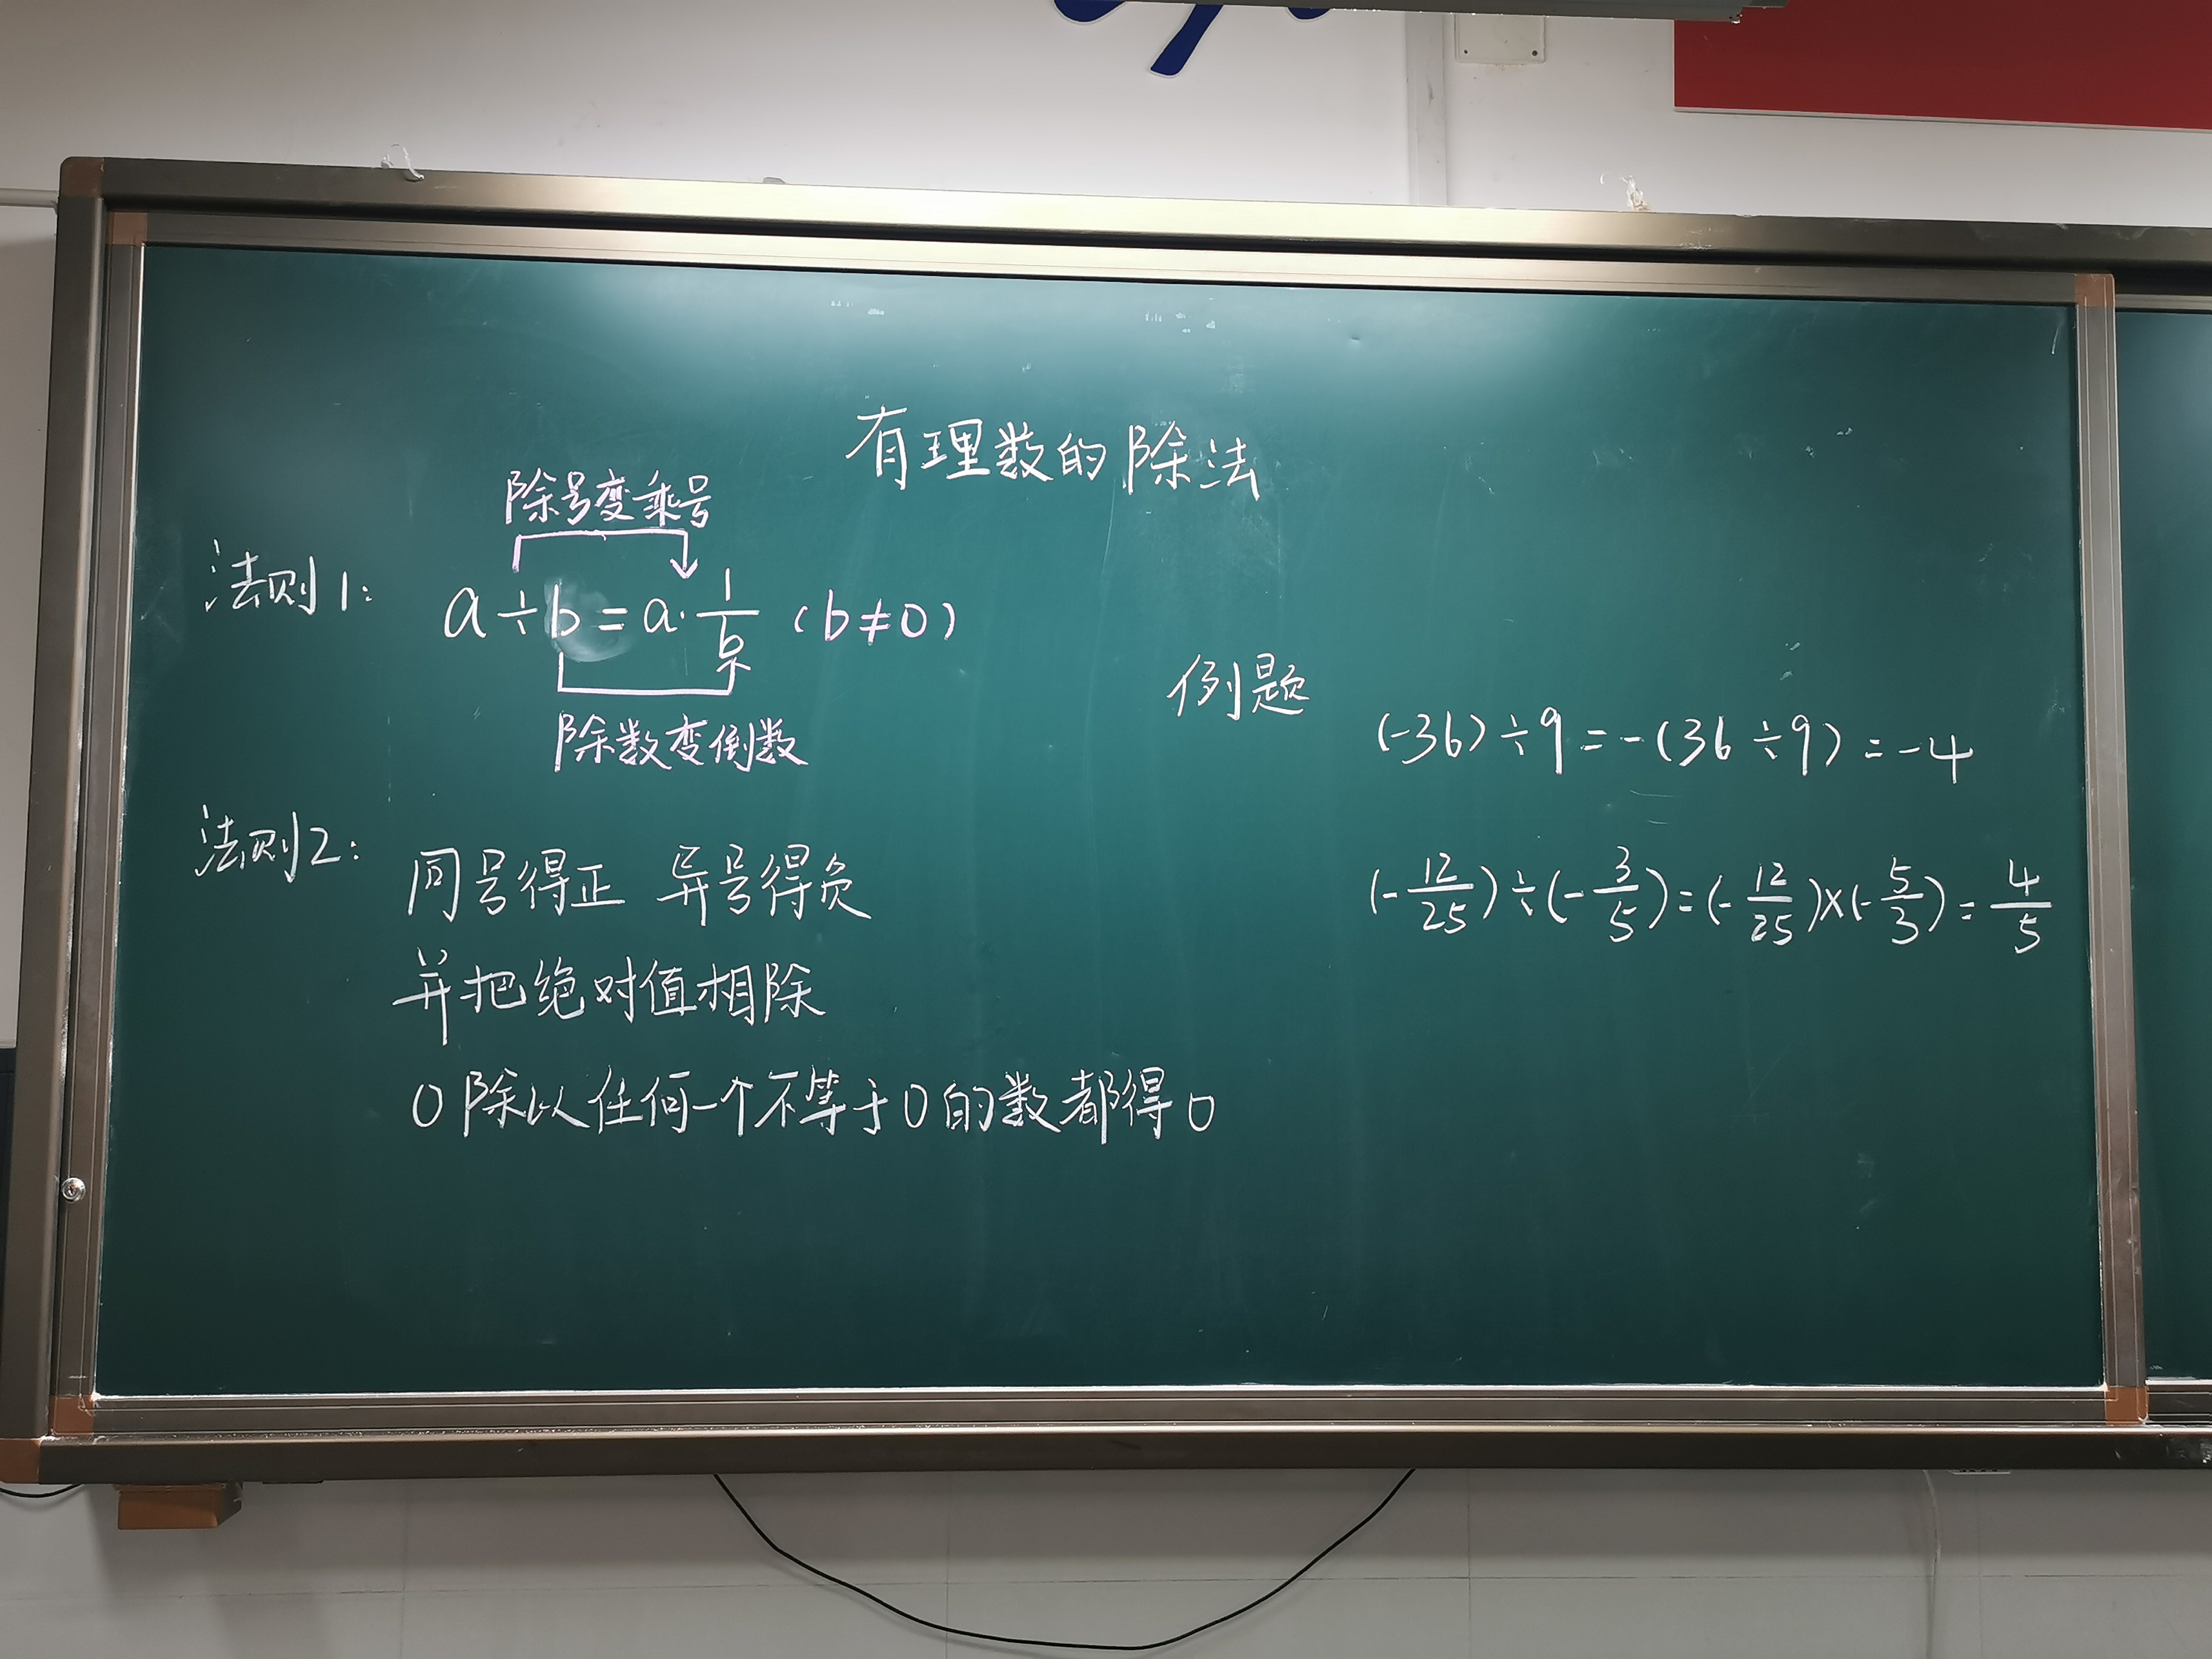 有理数的除法
除号变乘号
法则1:
a÷b=a·1/b (b≠0)
除数变倒数
法则2:
同号得正 异号得负
并把绝对值相除
0除以任何一个不等于0的数都得0
例题
(-36)÷9=-(36÷9)=-4
(-12/25)÷(-3/5)=(-12/25)×(-5/3)=4/5